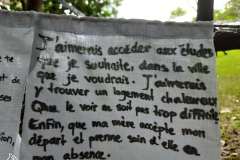 J'aimerais accéder aux études
que je souhaite, dans la ville
que je voudrais. J'aimerais
y trouver un logement chaleureux
Que le voir ne soit pas trop difficile
Enfin, que ma mère accèple mon
départ et prenne soin d'elle en
mon absence.